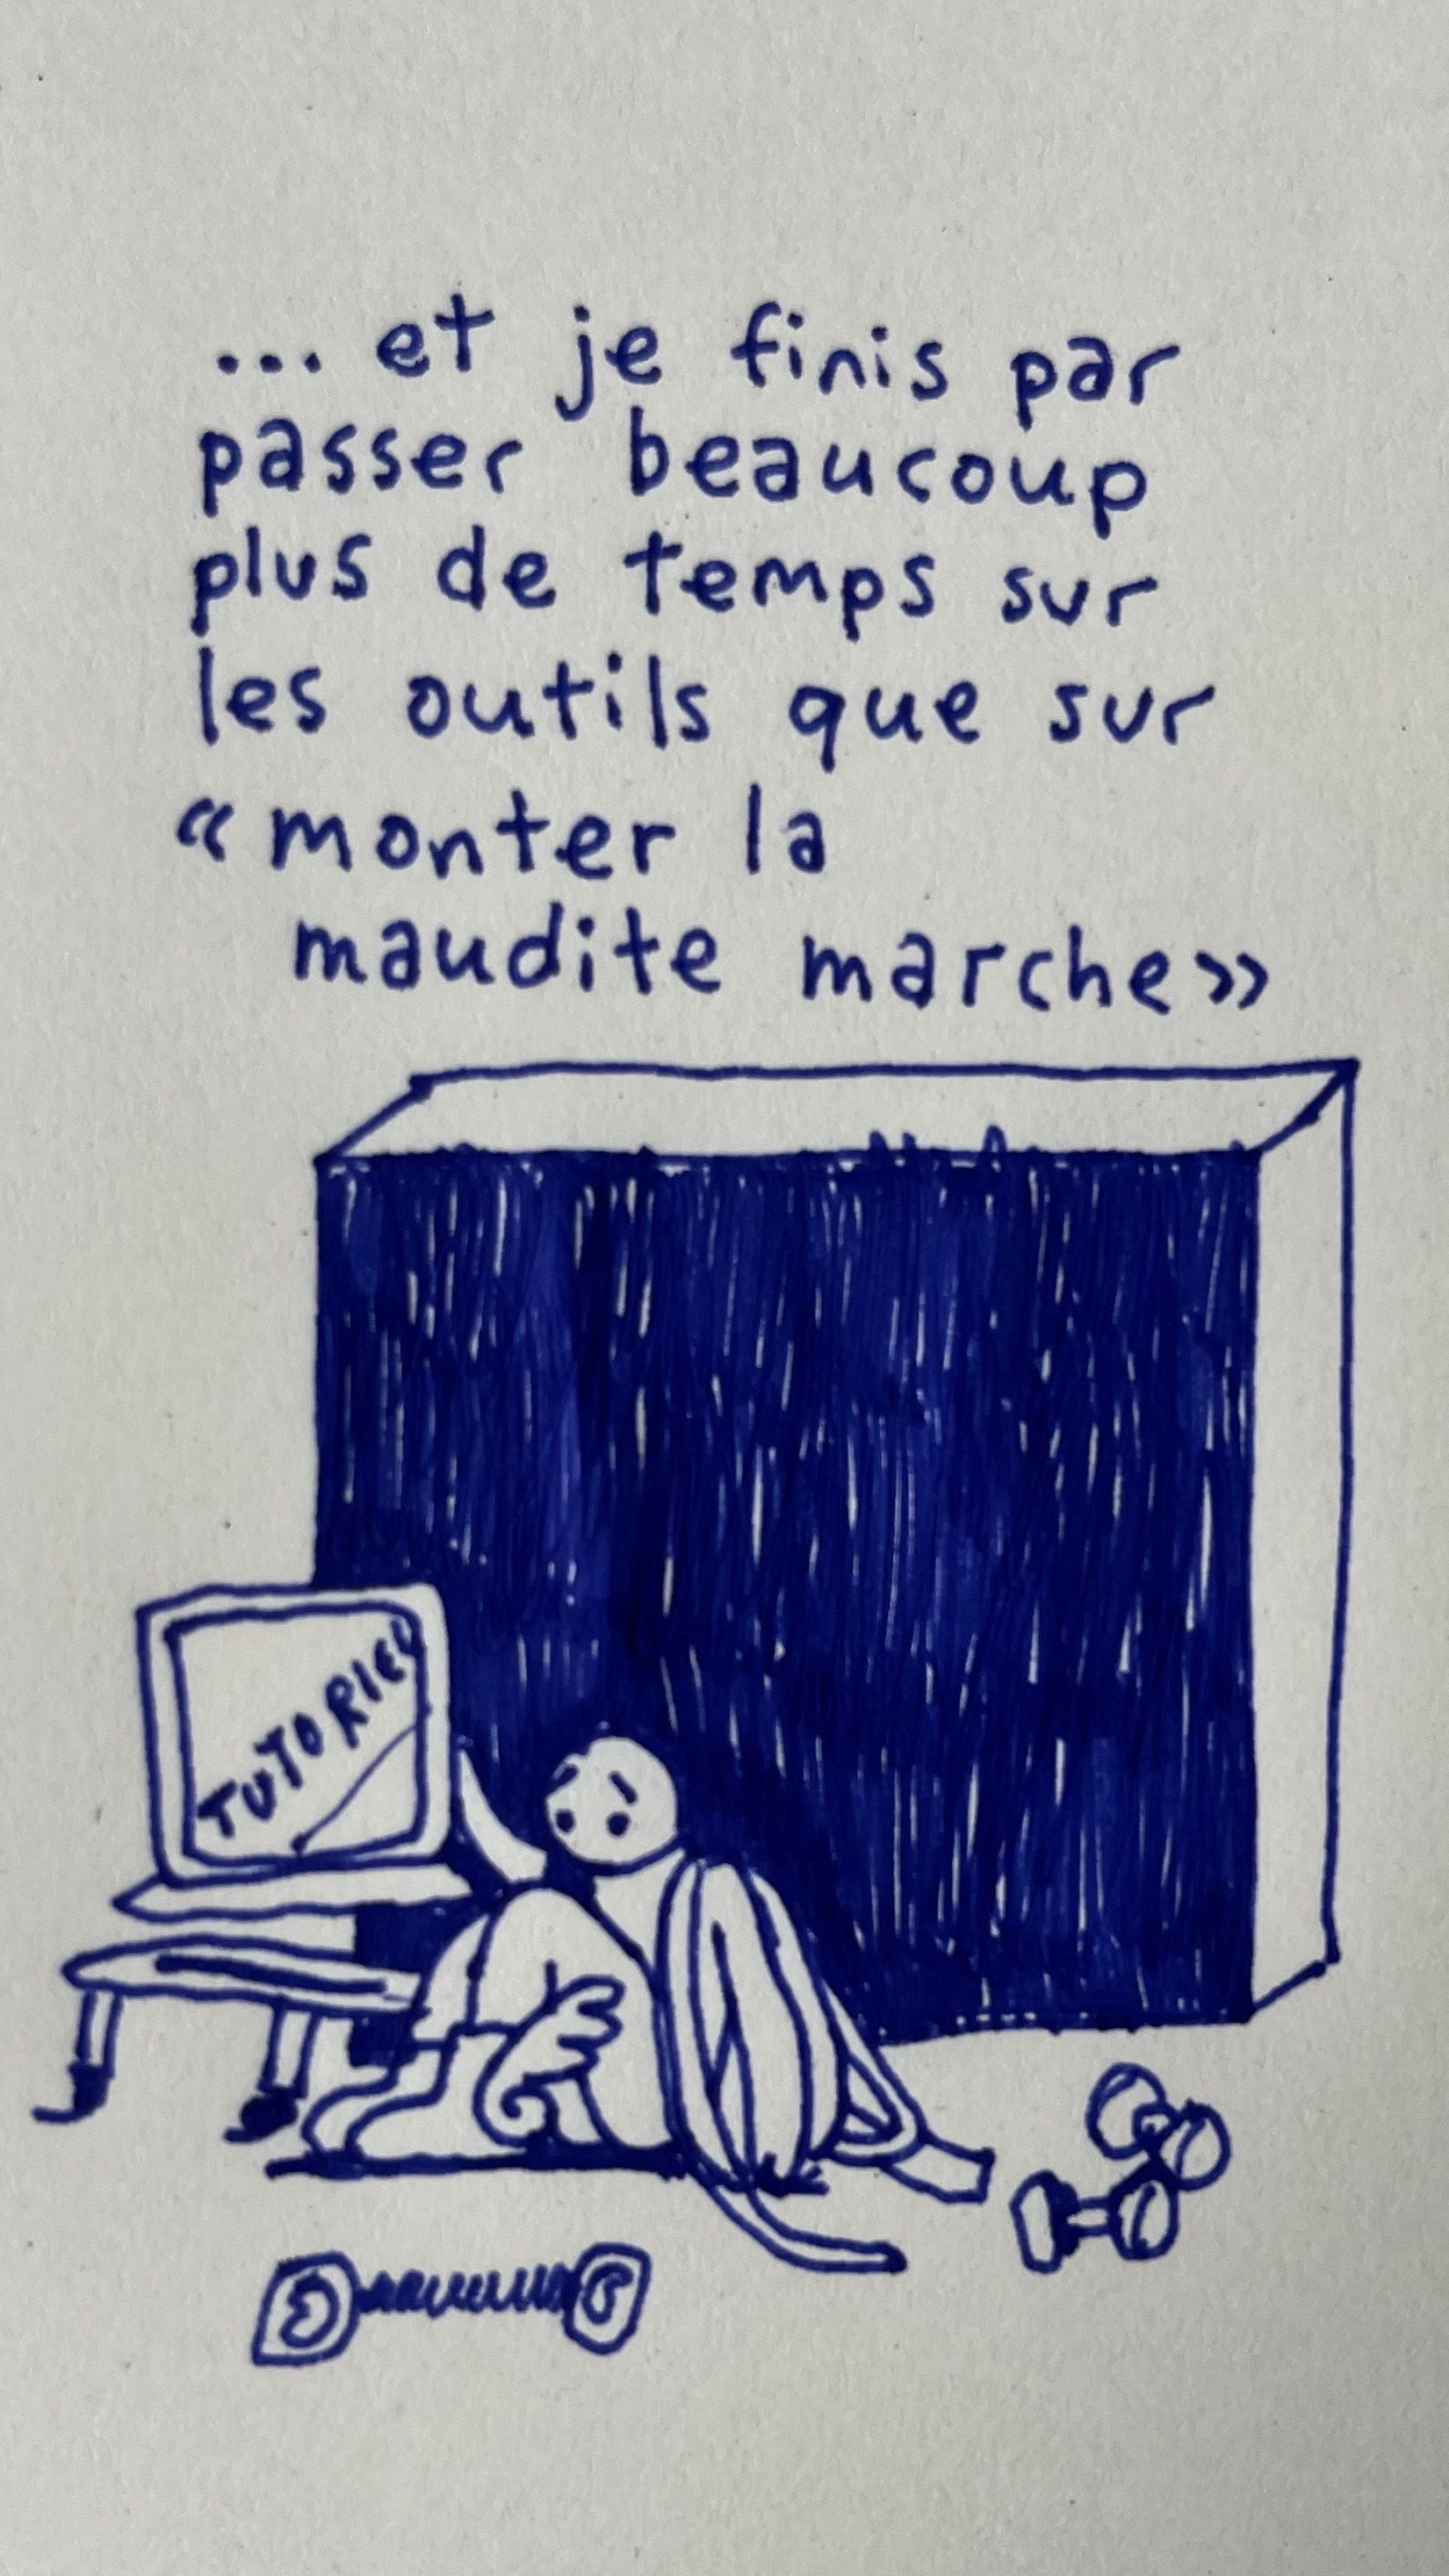 ... et je finis par
passer beaucoup
plus de temps sur
les outils que sur
«monter la
maudite marche»
TUTORIEL